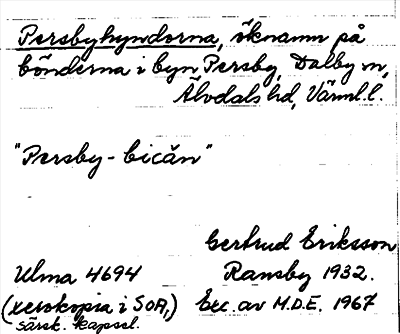 Persbyhyndorna, öknamn på
bönderna i byn Persby, Dalby sn,
Älvdals hd, Värml. l.
"Persby-bicån"
Gertrud Eriksson
Ulma 4694 Ransby 1932.
(xerokopia i SOA,) Exc. av M.D.E. 1967
särsk. kapsel.